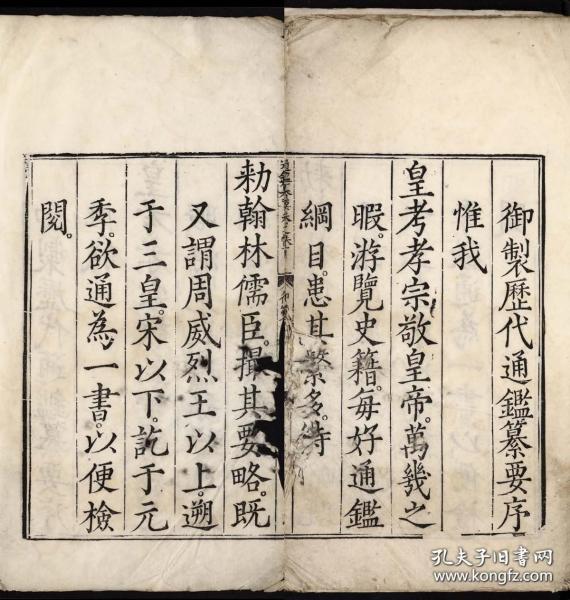 御製歷代通鑑纂要序
惟我
皇考孝宗敬皇帝。萬幾之
暇。游覽史籍。每好通鑑
綱目。患其繁多。特
勑翰林儒臣。撮其要略。既
又謂周威烈王以上。遡
于三皇。宋以下。訖于元
季。欲通為一書。以便檢
閱。
孔夫子旧书网
www.kongfz.com